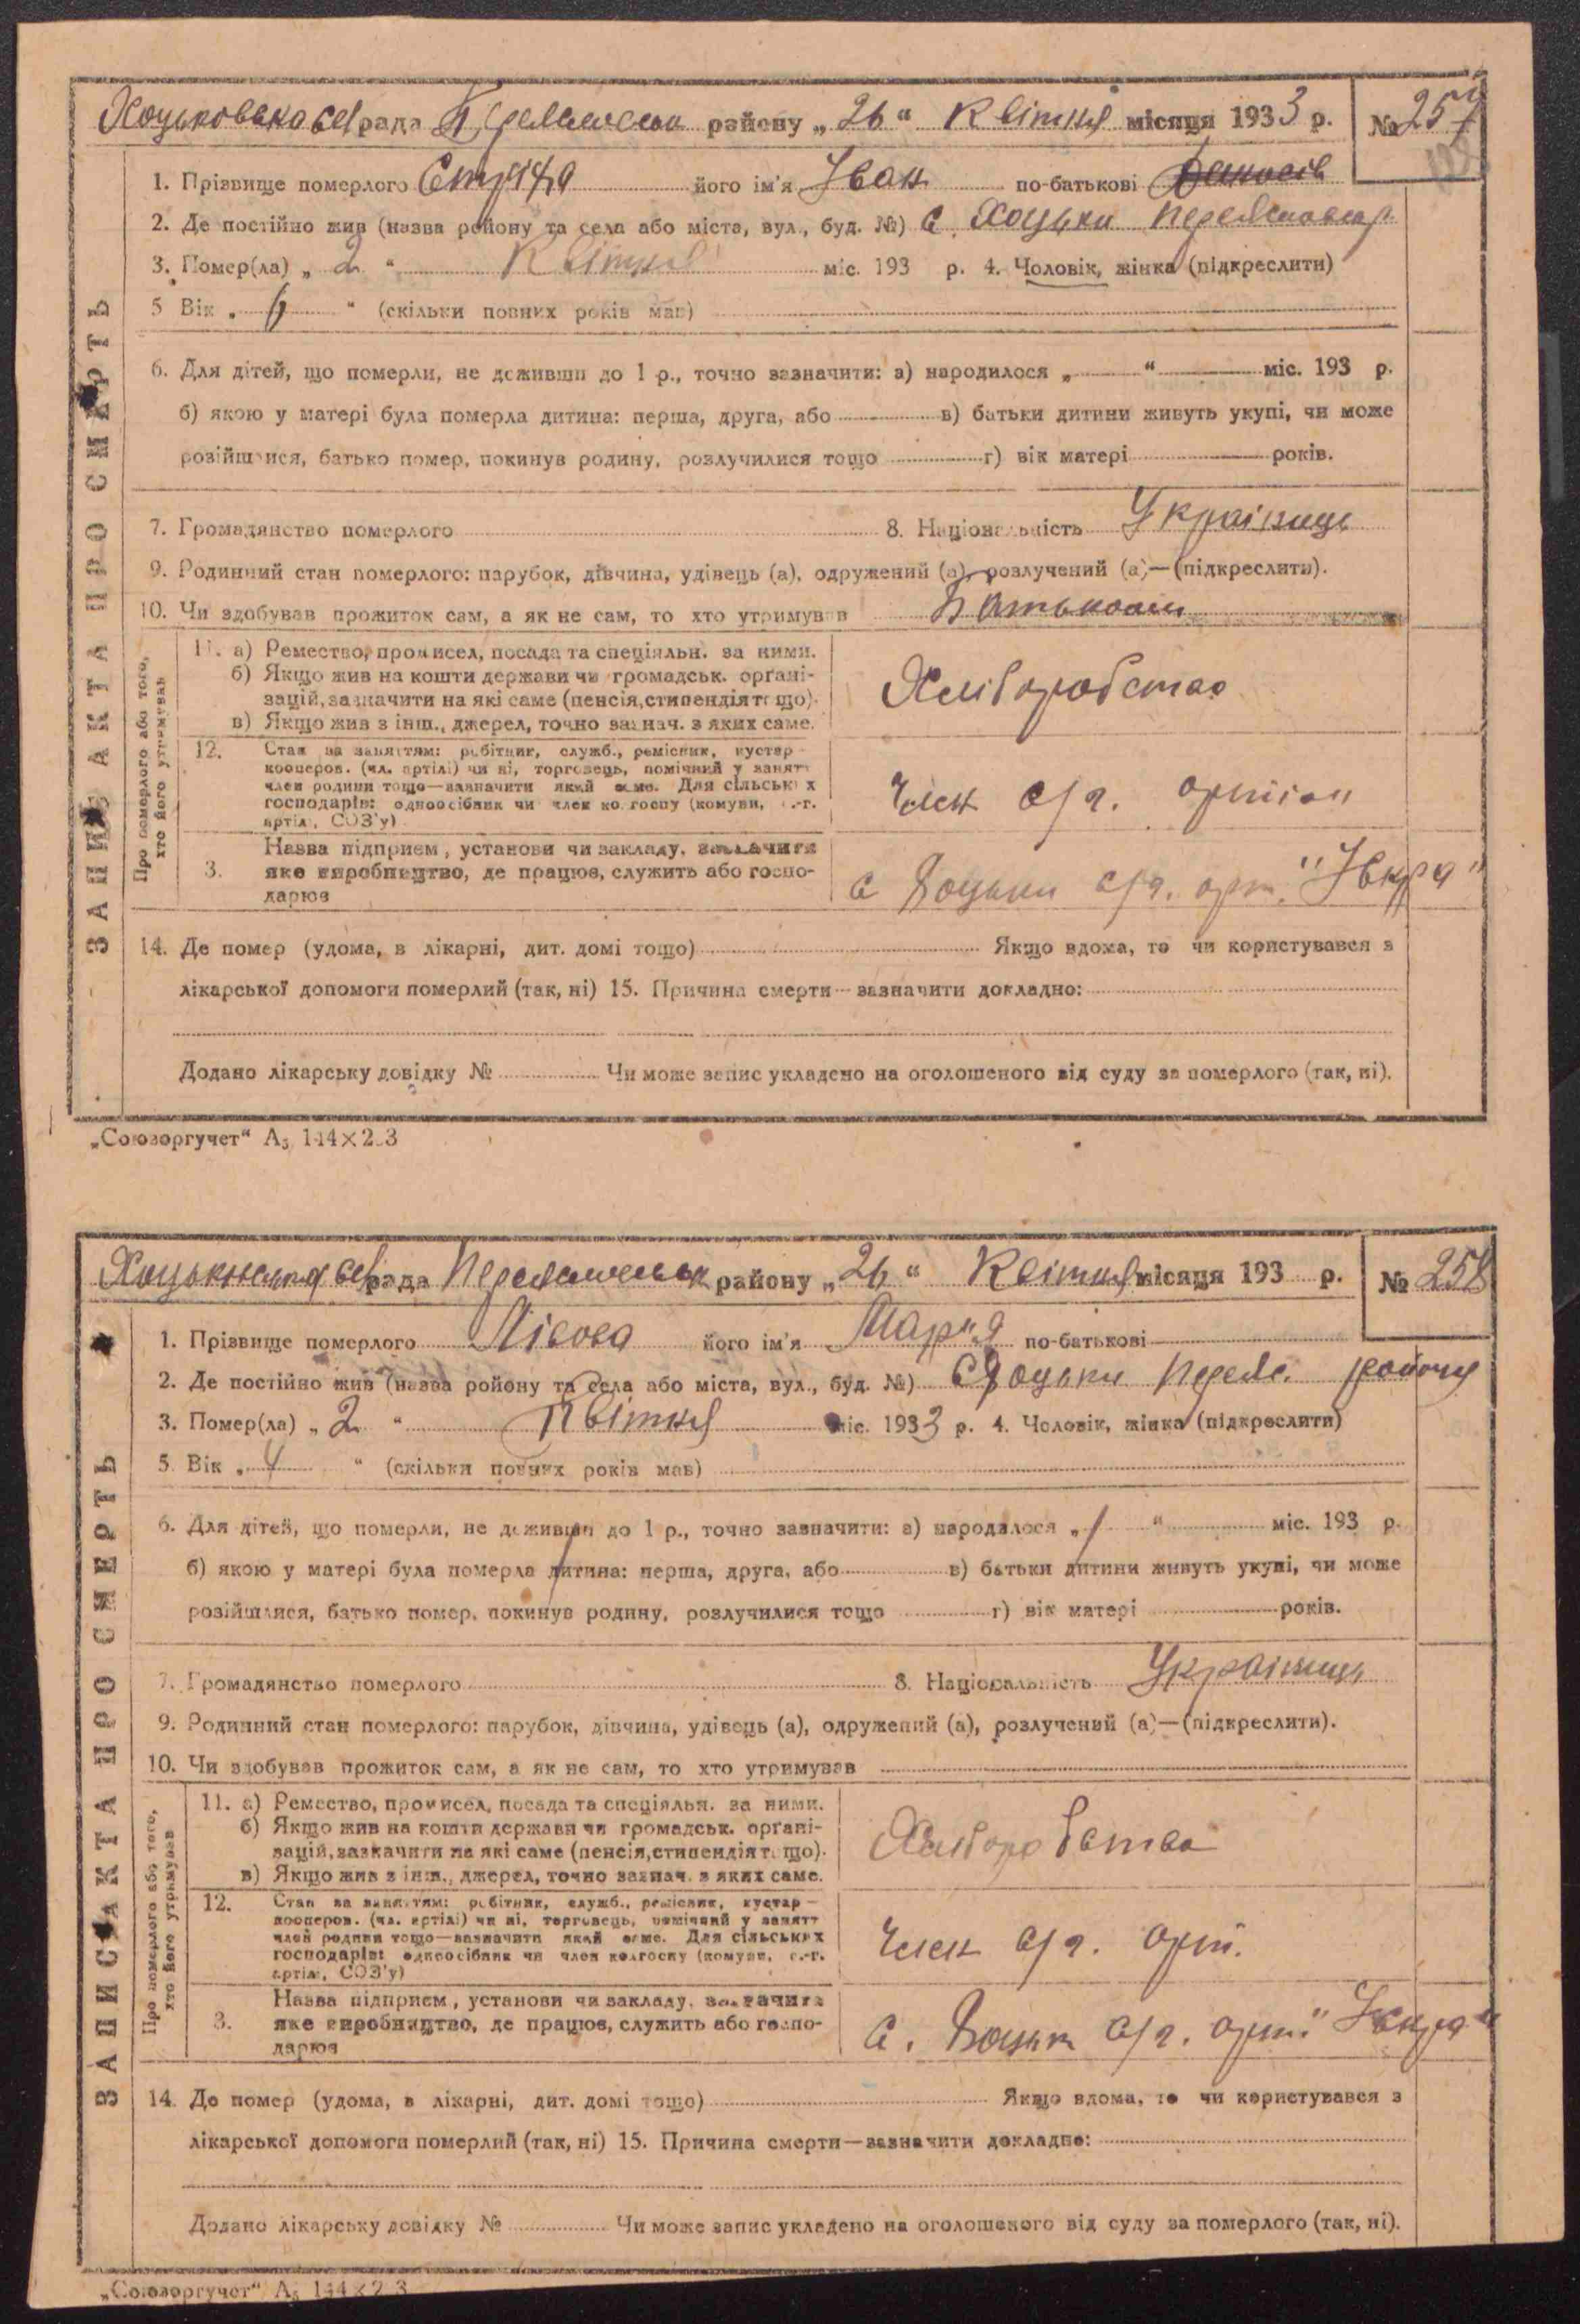 Хоцьковська сел рада Переяславськ району „26“ Квітня місяця 1933 р. № 257
1. Прізвище померлого його ім'я Іван по-батькові
2. Де постійно жив (назва району та села або міста, вул., буд. №) с. Хоцьки Переяславськ р.
3. Помер(ла) „2“ Квітня міс. 193 р. 4. Чоловік, жінка (підкреслити)
5 Вік „6“ (скільки повних років мав)
6. Для дітей, що померли, не доживши до 1 р., точно зазначити: а) народилося „ “ міс. 193 р.
б) якою у матері була померла дитина: перша, друга, або в) батьки дитини живуть укупі, чи може
розійшлися, батько помер, покинув родину, розлучилися тощо г) вік матері років.
7. Громадянство померлого 8. Національність Українець
9. Родинний стан померлого: парубок, дівчина, удівець (а), одружений (а), розлучений (а)—(підкреслити).
10. Чи здобував прожиток сам, а як не сам, то хто утримував Батьком
ЗАПИС АКТА ПРО СМЕРТЬ
Про померлого або того, хто його утримував
11. а) Ремество, промисел, посада та спеціяльн. за ними.
б) Якщо жив на кошти держави чи громадськ. органі-
зацій, зазначити на які саме (пенсія, стипендія тощо).
в) Якщо жив з інш., джерел, точно зазнач. з яких саме.
Хліборобство
12. Стан за заняттям: робітник, служб., ремісник, кустар—
кооперов. (чл. артілі) чи ні, торговець, помічний у занятт
член родини тощо—зазначити який саме. Для сільських
господарів: одноосібник чи член колгоспу (комуни, с.-г.
артілі, СОЗ'у)
Член с/г. артіли
3. Назва підприєм., установи чи закладу, зазначити
яке виробництво, де працює, служить або госпо-
дарює
с Хоцьки с/г. арт. "Іскра"
14. Де помер (удома, в лікарні, дит. домі тощо) Якщо вдома, то чи користувався з
лікарської допомоги померлий (так, ні) 15. Причина смерти—зазначити докладно:
Додано лікарську довідку № Чи може запис укладено на оголошеного від суду за померлого (так, ні).
„Союзоргучет“ А₅ 144×2.3
Хоцьківська сел рада Переяславськ району „26“ Квітня місяця 193 р. № 258
1. Прізвище померлого Лісова його ім'я Мария по-батькові
2. Де постійно жив (назва району та села або міста, вул., буд. №) с Хоцьки Переяс. району
3. Помер(ла) „2“ Квітня міс. 1933 р. 4. Чоловік, жінка (підкреслити)
5. Вік „4“ (скільки повних років мав)
6. Для дітей, що померли, не доживши до 1 р., точно зазначити: а) народилося „ “ міс. 193 р.
б) якою у матері була померла дитина: перша, друга, або в) батьки дитини живуть укупі, чи може
розійшлися, батько помер, покинув родину, розлучилися тощо г) вік матері років.
7. Громадянство померлого 8. Національність Українець
9. Родинний стан померлого: парубок, дівчина, удівець (а), одружений (а), розлучений (а)—(підкреслити).
10. Чи здобував прожиток сам, а як не сам, то хто утримував
ЗАПИС АКТА ПРО СМЕРТЬ
Про померлого або того, хто його утримував
11. а) Ремество, промисел, посада та спеціяльн. за ними.
б) Якщо жив на кошти держави чи громадськ. органі-
зацій, зазначити на які саме (пенсія, стипендія тощо).
в) Якщо жив з інш., джерел, точно зазнач. з яких саме.
Хліборобство
12. Стан за заняттям: робітник, служб., ремісник, кустар—
кооперов. (чл. артілі) чи ні, торговець, помічний у занятт
член родини тощо—зазначити який саме. Для сільських
господарів: одноосібник чи член колгоспу (комуни, с.-г.
артілі, СОЗ'у)
Член с/г. арт.
3. Назва підприєм., установи чи закладу, зазначити
яке виробництво, де працює, служить або госпо-
дарює
с. Хоцьк с/г. арт. "Іскра"
14. Де помер (удома, в лікарні, дит. домі тощо) Якщо вдома, то чи користувався з
лікарської допомоги померлий (так, ні) 15. Причина смерти—зазначити докладно:
Додано лікарську довідку № Чи може запис укладено на оголошеного від суду за померлого (так, ні).
„Союзоргучет“ А₅ 144×2.3